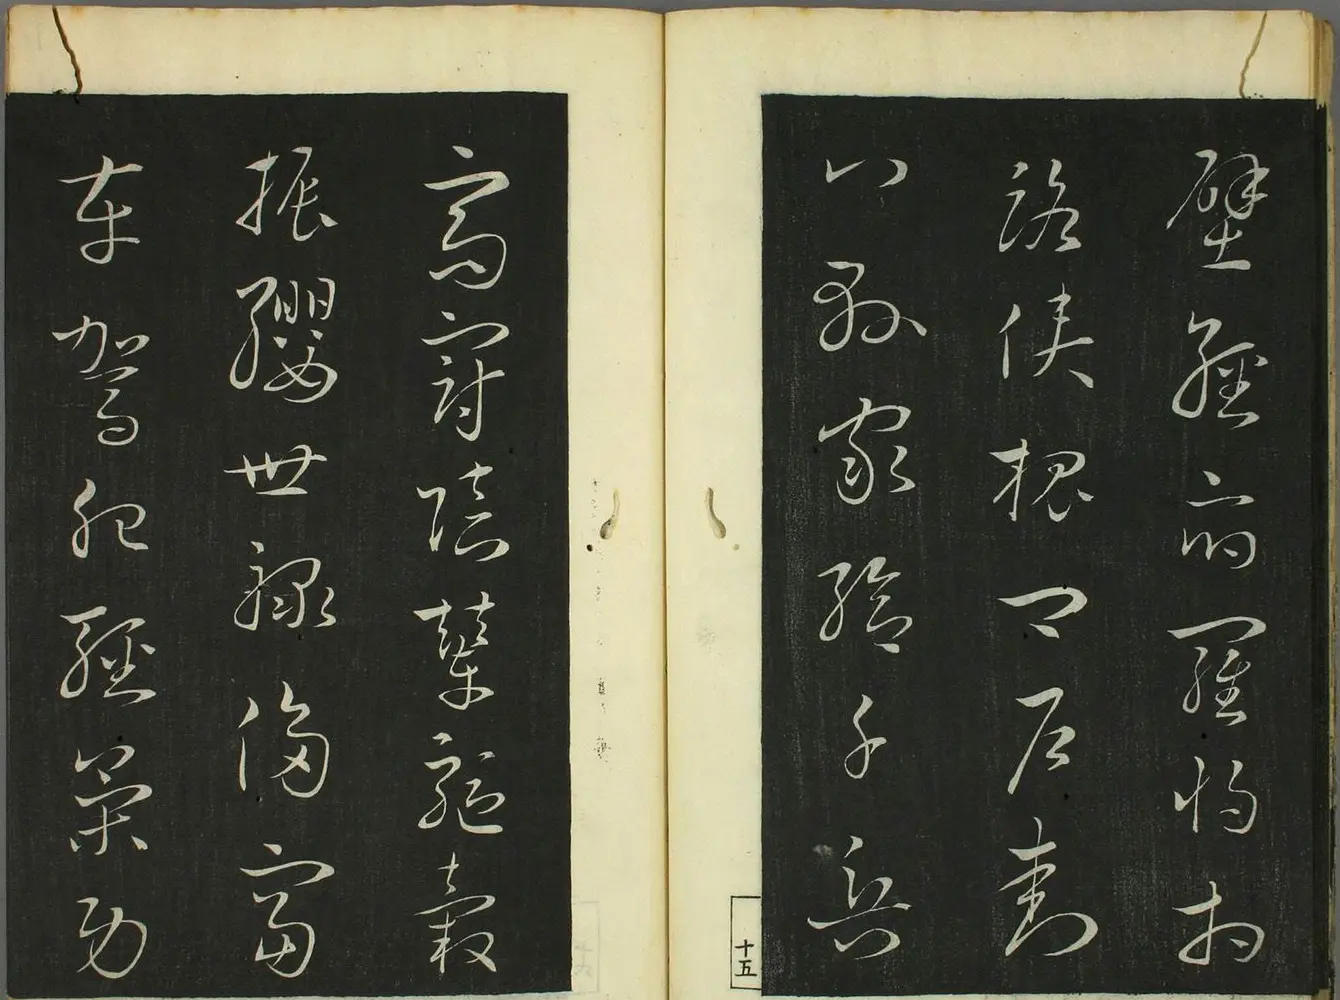 壁經府羅將相
路俠槐卿戶封
八縣家給千兵
十五
高冠陪輦驅轂
振纓世祿侈富
車駕肥輕策功